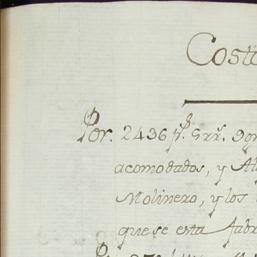 Costt
Por. 2436 p.s 5 rr.
acomodados, y Al
Molinero, y los
que se esta fabr